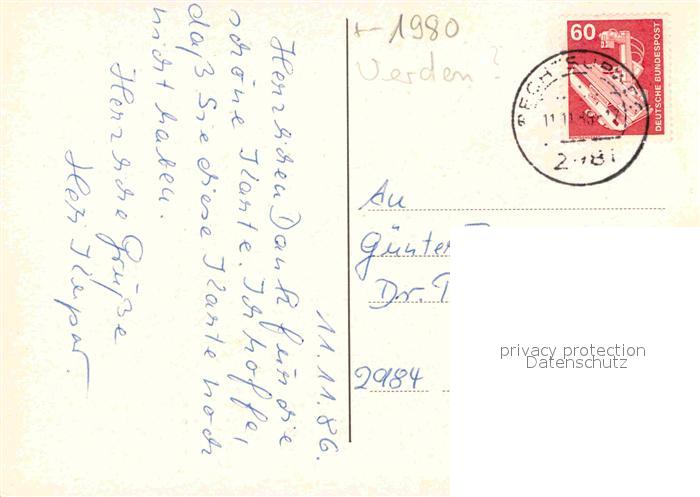 11.11.86.
Herzlichen Dank für die
schöne Karte. Ich hoffe,
daß Sie diese Karte noch
nicht haben.
Herzliche Grüße
+- 1980
Verden?
60
DEUTSCHE BUNDESPOST
11.11.86
An
Günter
Dr.
2984
privacy protection
Datenschutz